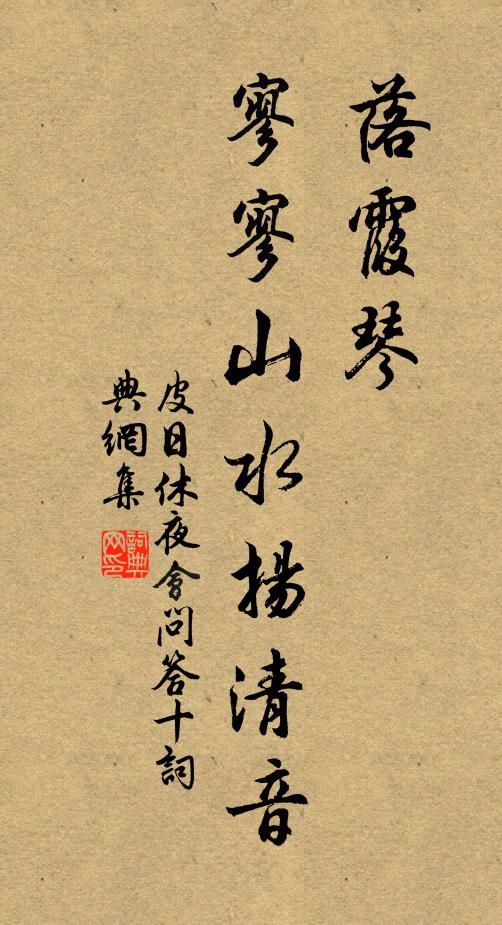 落霞琴
寥寥山水揚清音
皮日休夜會問答十詞
典網集
詞典网印